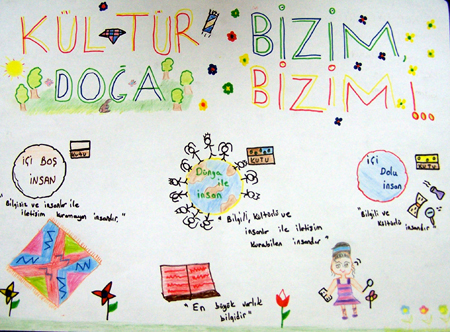 KÜLTÜR! BİZİM,
DOĞA BİZİM!..
İÇİ BOŞ
İNSAN
KUTU
"Bilgisiz ve insanlar ile
iletişim kuramayan insandır."
Dünya
ile
insan
KUTU
"Bilgili, kültürlü ve
insanlar ile iletişim
kurabilen insandır"
İÇİ
Dolu
insan
KUTU
"Bilgili ve
kültürlü insandır."
"En büyük varlık
bilgidir"